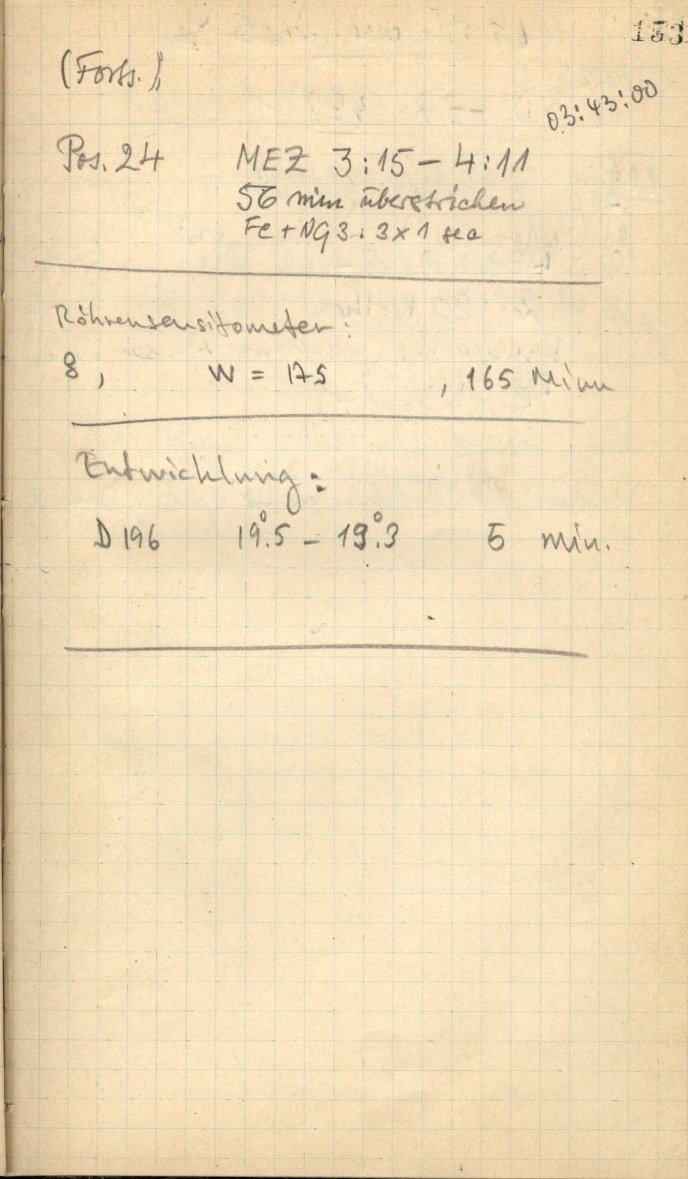 153
(Forts.)
03:43:00
Pos. 24 MEZ 3:15 – 4:11
56 min überstrichen
Fe + NG3: 3 x 1 sec
Röhrensensitometer:
8, W = 175, 165 Minn
Entwicklung:
D 196 19°.5 – 19°.3 5 min.